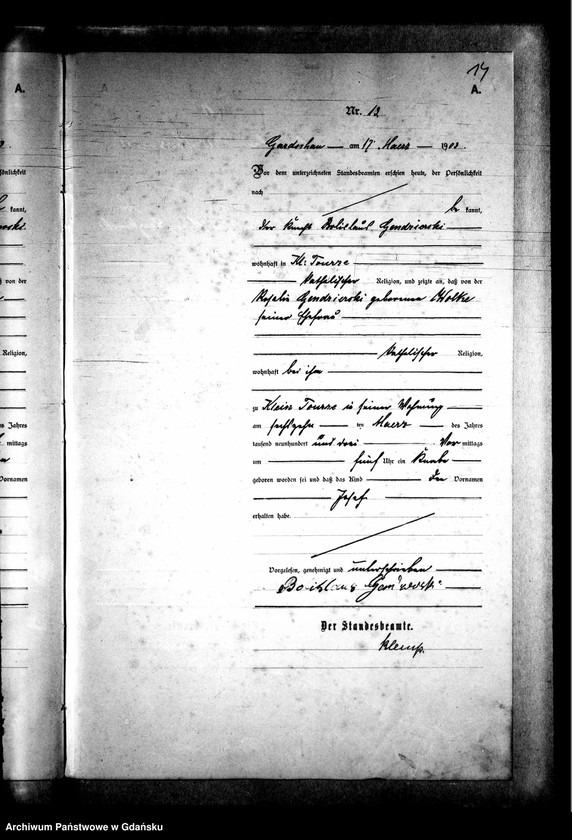 14
A.
A.
Nr. 12
Gardschau am 17 Maerz 1903.
Vor dem unterzeichneten Standesbeamten erschien heute, der Persönlichkeit
nach
kannt,
der Knecht Boleslaus Gendzierski
wohnhaft in Kl: Tourze
katholischer Religion, und zeigte an, daß von der
Rosalie Gendzierski geborenen
seiner Ehefrau
katholischer Religion,
wohnhaft bei ihm
zu Klein Tourze in seiner Wohnung
am sechszehn ten Maerz des Jahres
tausend neunhundert und drei Vor mittags
um fünf Uhr ein Knabe
geboren worden sei und daß das Kind den Vornamen
Josef
erhalten habe.
Vorgelesen, genehmigt und unterschrieben
Der Standesbeamte.
Klemp.
Archiwum Państwowe w Gdańsku